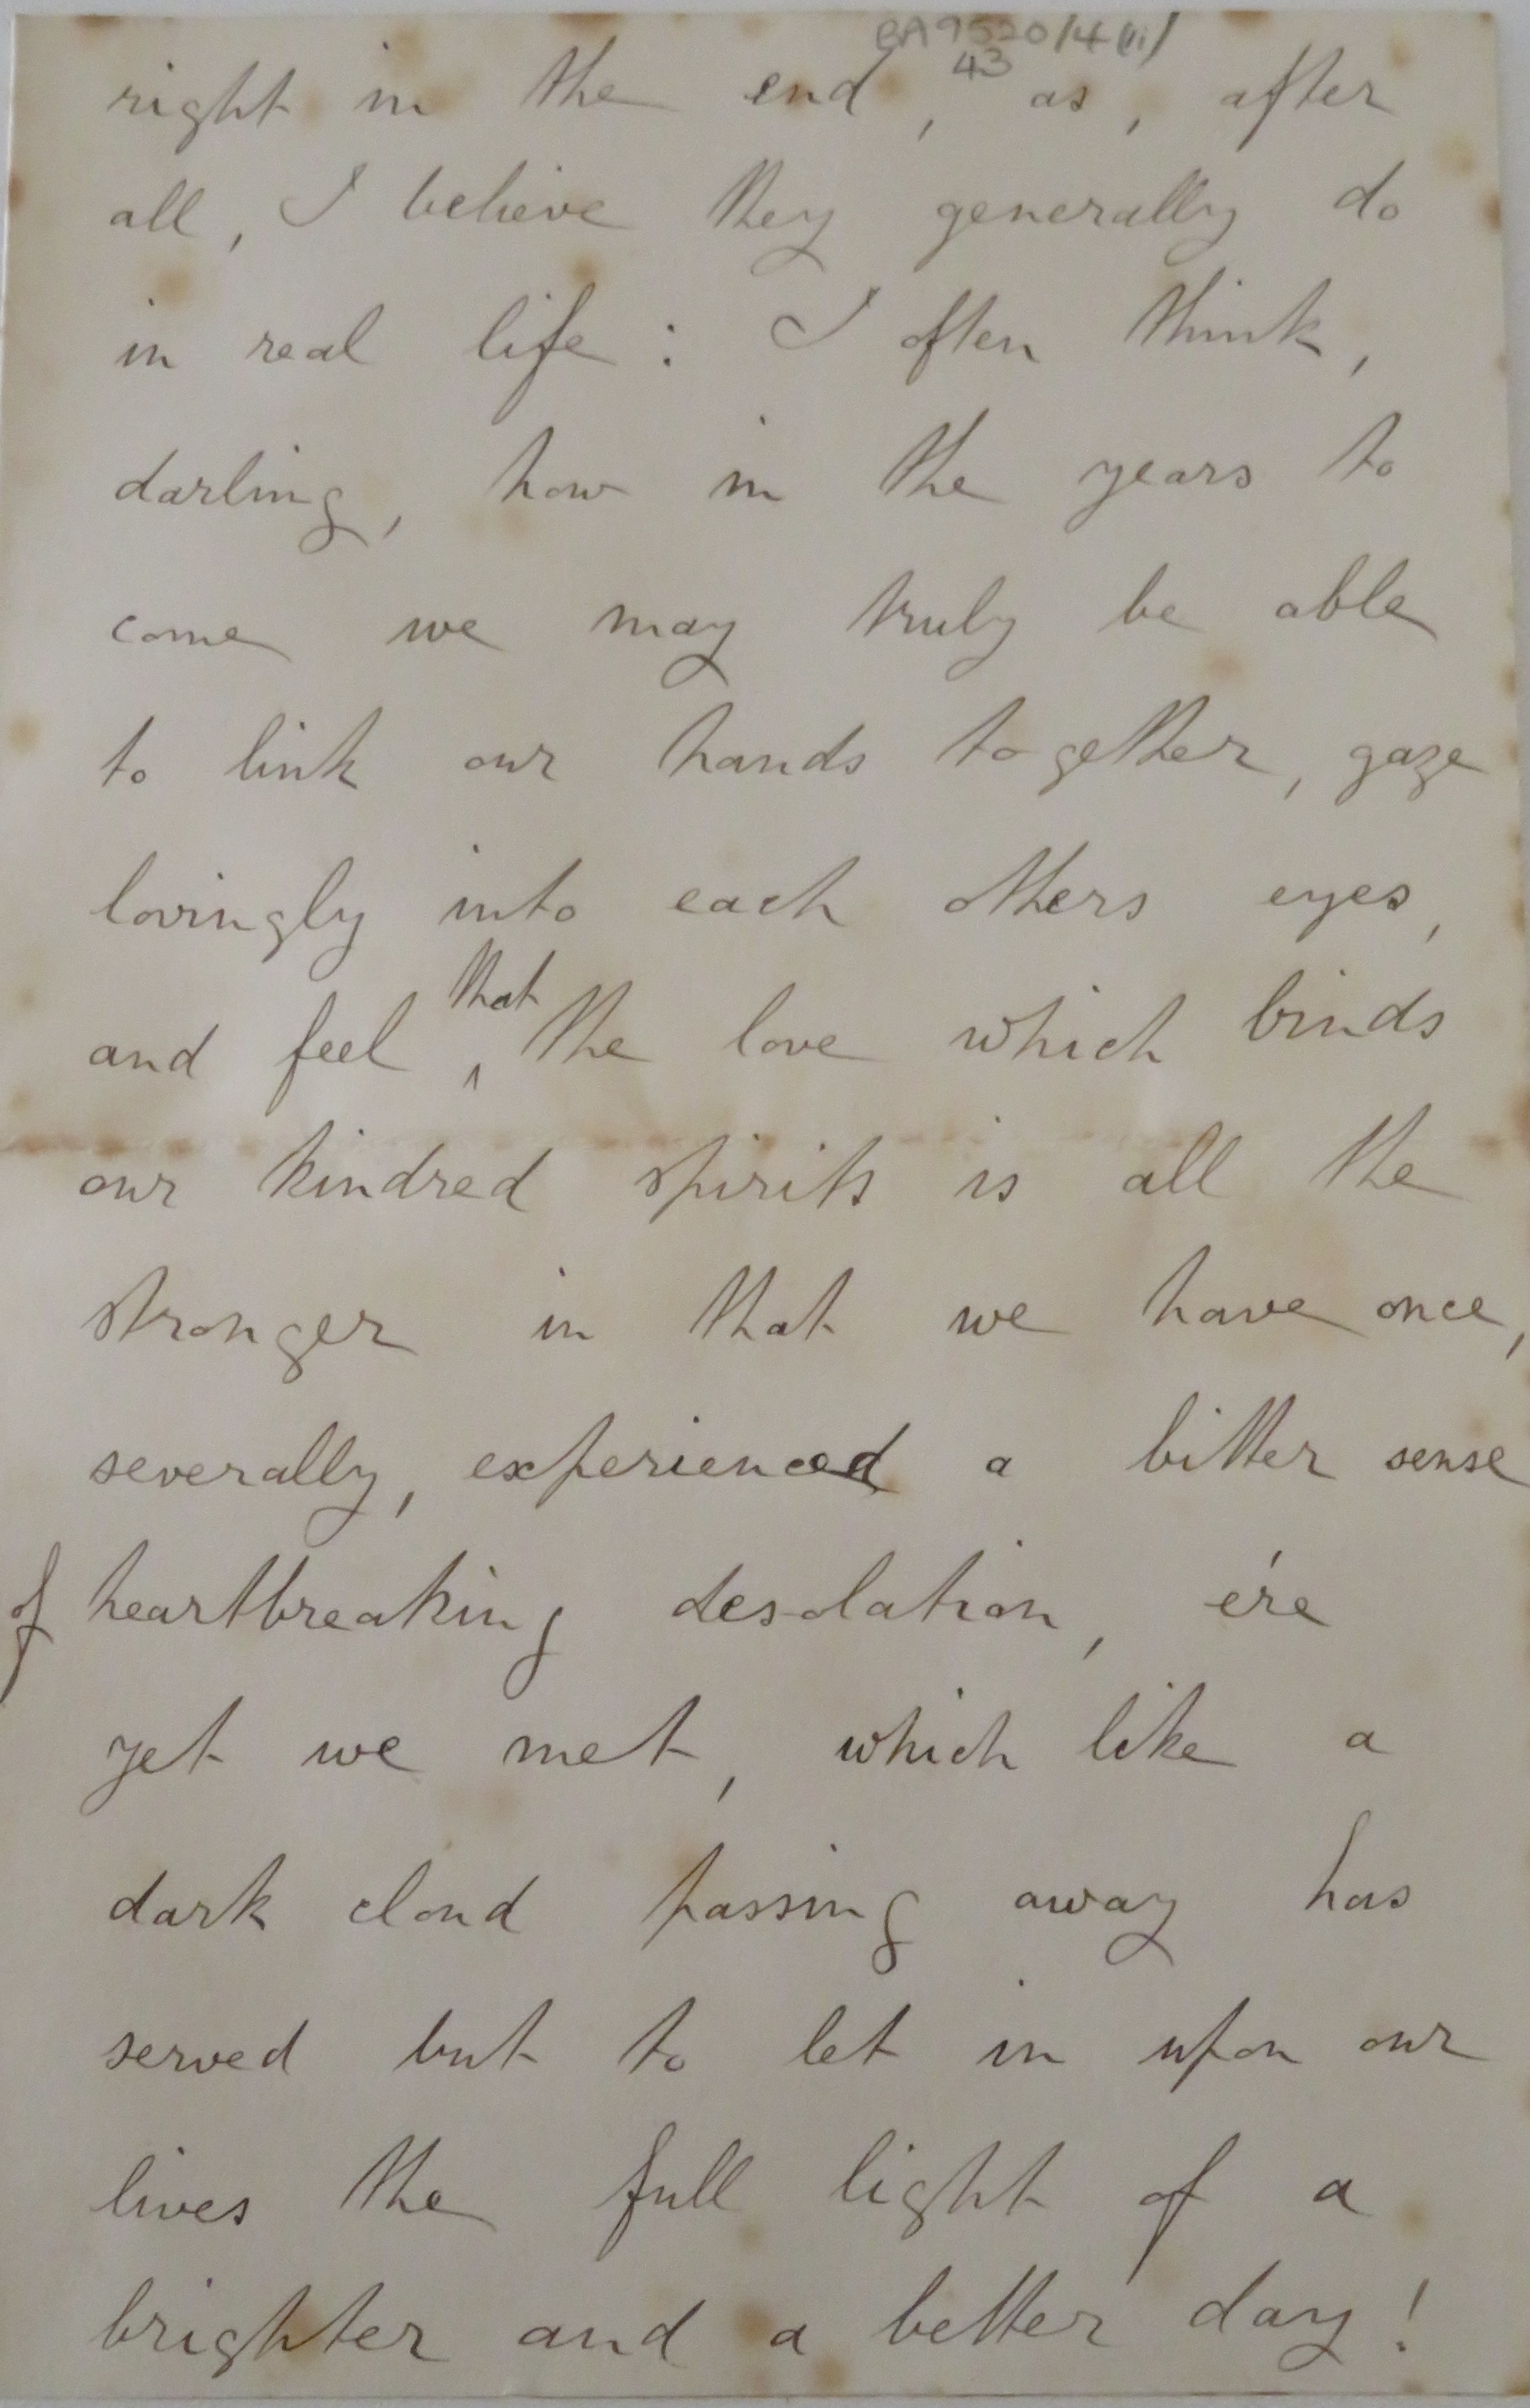 BA9520/4(ii)
43
right in the end, as, after
all, I believe they generally do
in real life: I often think,
darling, how in the years to
come we may truly be able
to link our hands together, gaze
lovingly into each others eyes,
that
and feel ^ the love which binds
our kindred spirits is all the
stronger in that we have once,
severally, experienced a bitter sense
of heartbreaking desolation, e're
yet we met, which like a
dark cloud passing away has
served but to let in upon our
lives the full light of a
brighter and a better day!